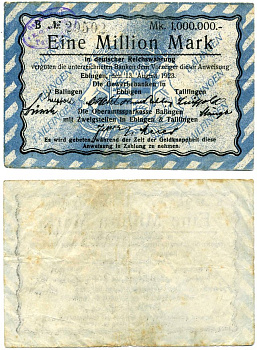 B № 20502 Mk. 1,000,000.-
Eine Million Mark
in deutscher Reichswährung
vergüten die unterzeichneten Banken dem Vorzeiger dieser Anweisung
Ebingen, den 13. August 1923.
Die Gewerbebanken in
Balingen Ebingen Tailfingen
Die Oberamtssparkasse Balingen
mit Zweigstellen in Ebingen & Tailfingen
Es wird gebeten, während der Zeit der Geldknappheit diese
Anweisung in Zahlung zu nehmen.